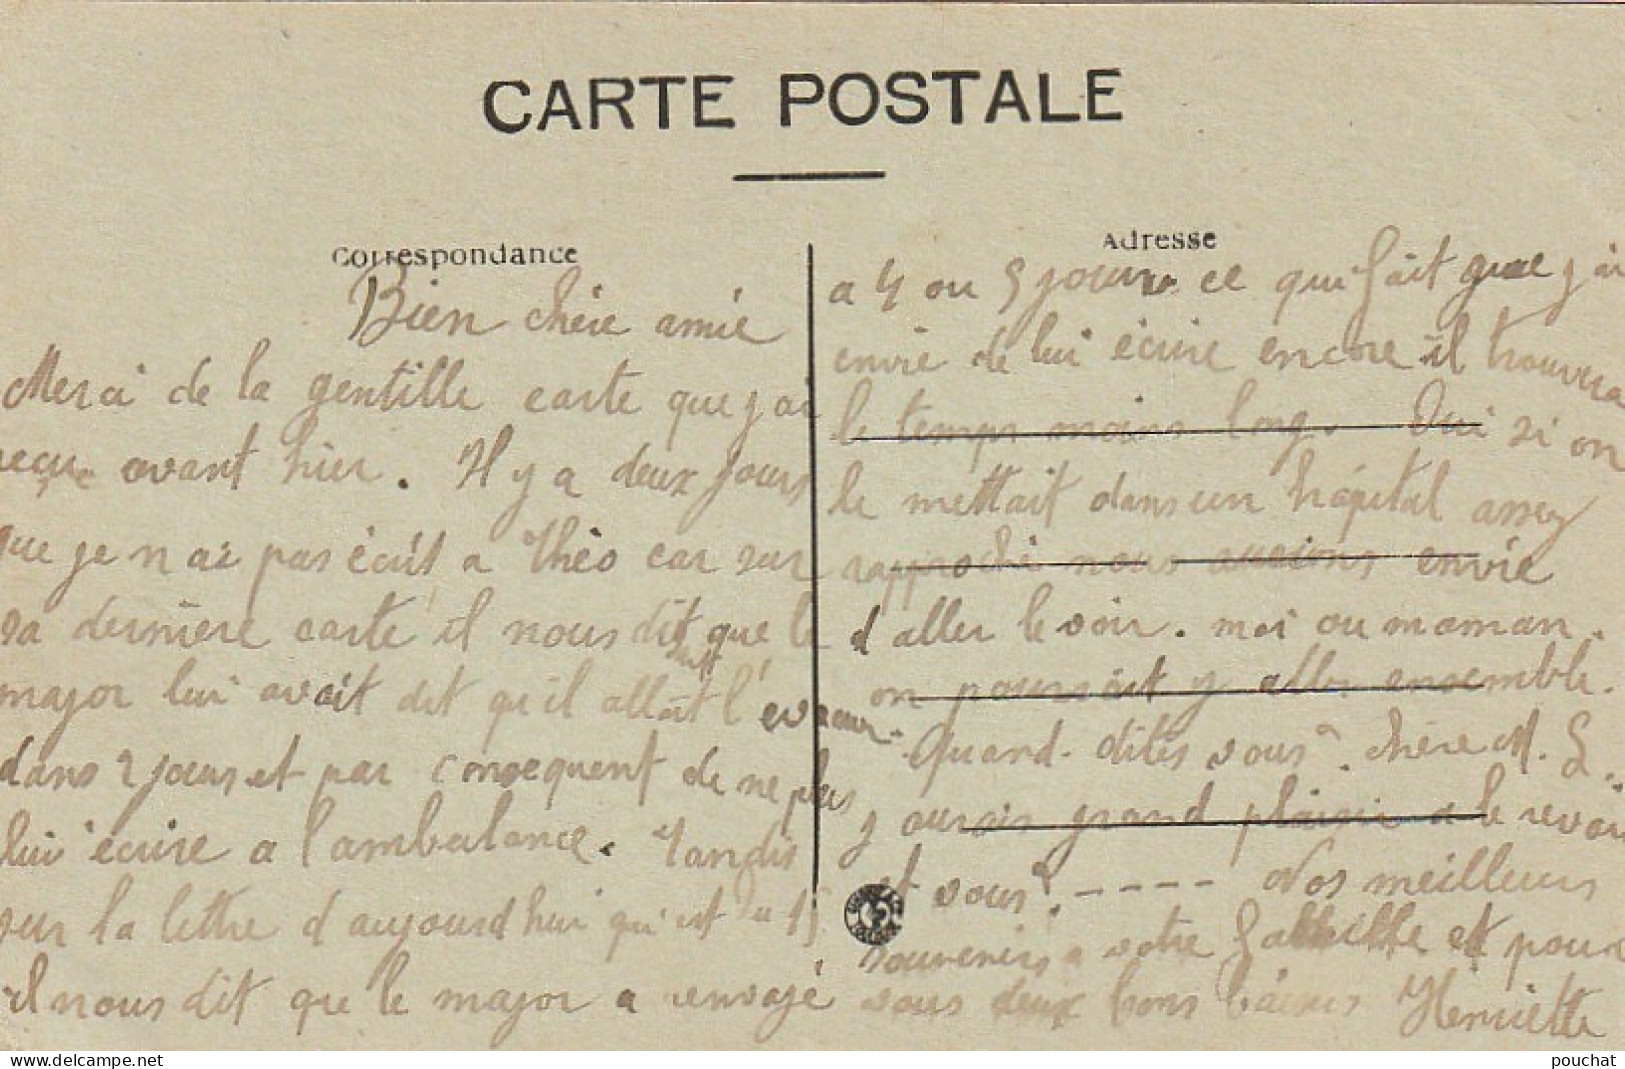 CARTE POSTALE
Correspondance
Bien chère amie
Merci de la gentille carte que j ai
reçue avant hier. Il y a deux jours
que je n ai pas écrit a Théo car sur
sa dernière carte il nous dit que le
major lui avait dit qu'il allait l'evacuer
dans 2 jours et par consequent de ne plus
lui écrire a l'ambulance. Tandis
sur la lettre d aujourd hui qu'est du 15
il nous dit que le major a renvoyé
Adresse
a 4 ou 5 jours ce qui fait que j ai
envie de lui écrire encore il trouvera
le temps moins long. Oui si on
le mettait dans un hôpital assez
rapproché nous aurions envie
d aller le voir. moi ou maman.
on pourrait y aller ensemble.
Quand dites vous? chère M. L.
j aurais grand plaisir a le revoir
et vous? ----- Nos meilleurs
souvenirs a votre famille et pour
vous deux bons baisers Henriette
www.delcampe.net
pouchat